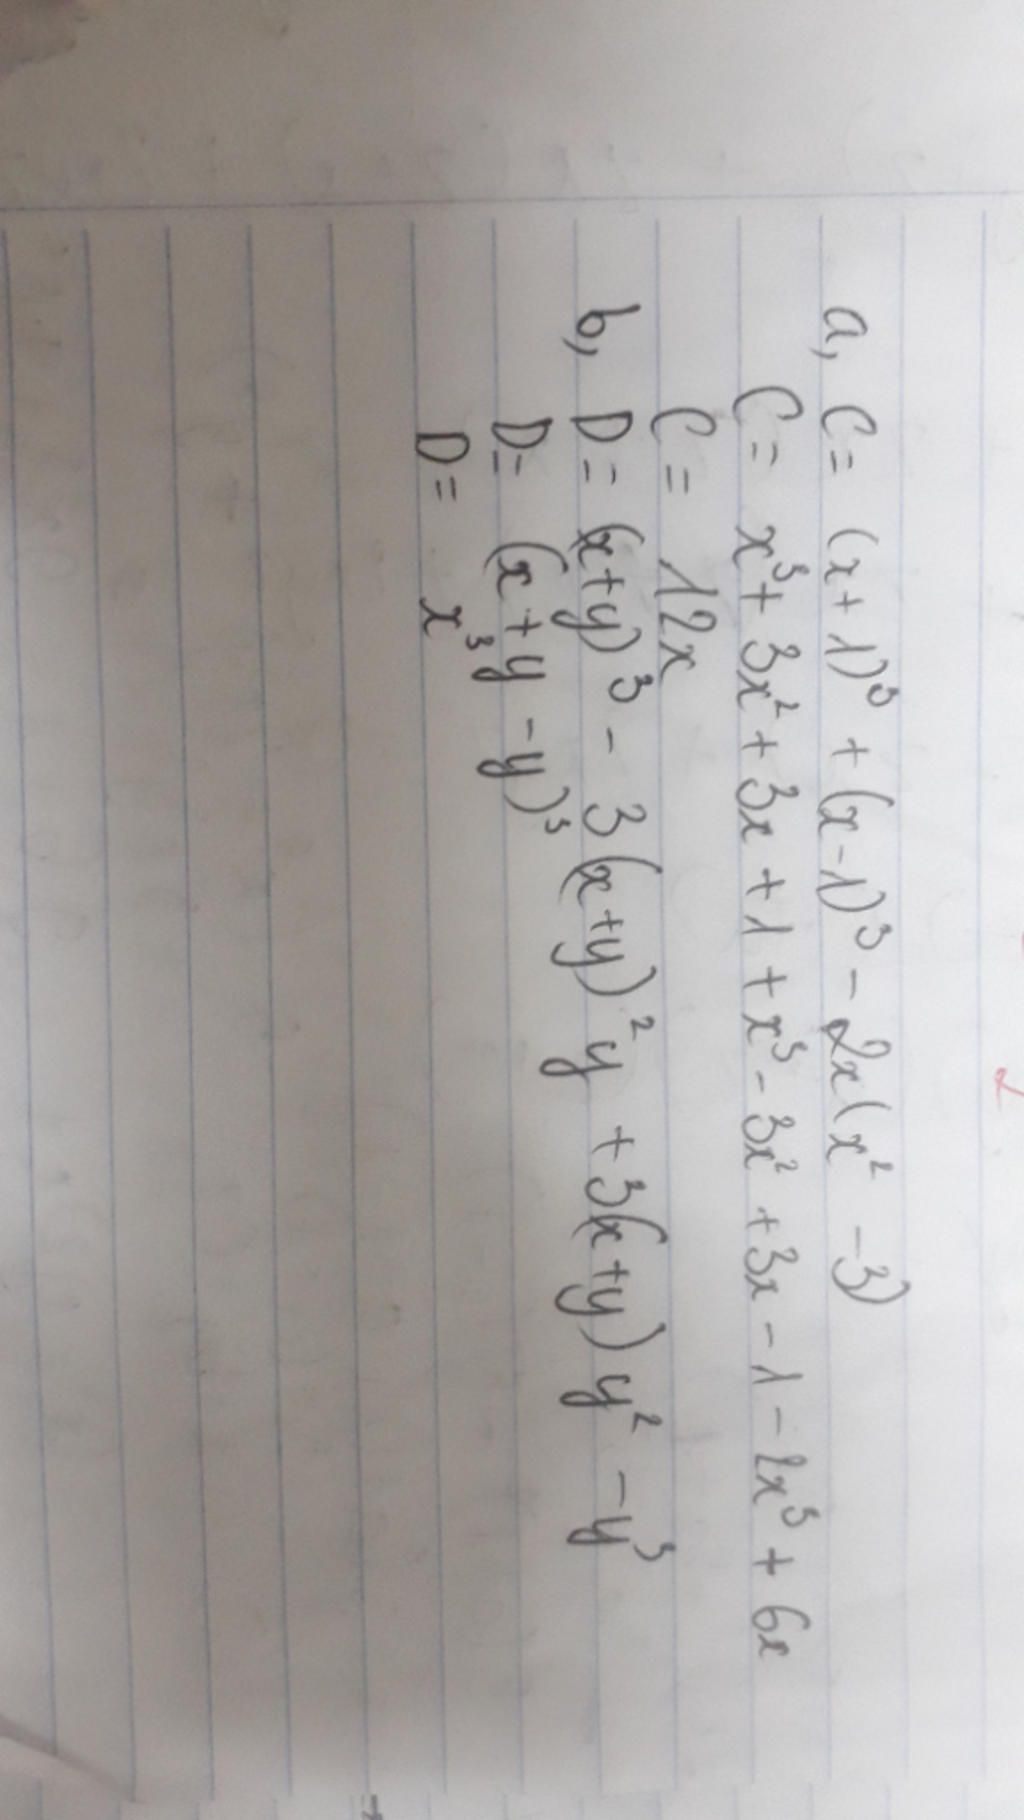 a, C = (x+1)³ + (x-1)³ - 2x(x² - 3)
C = x³ + 3x² + 3x + 1 + x³ - 3x² + 3x - 1 - 2x³ + 6x
C = 12x
b, D = (x+y)³ - 3(x+y)²y + 3(x+y)y² - y³
D = (x+y-y)³
D = x³